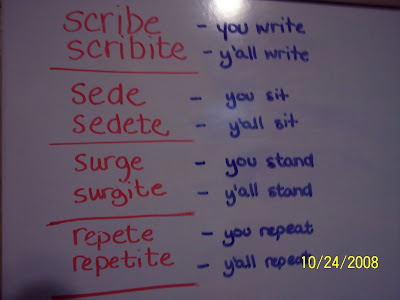 scribe - you write
scribite - y'all write
sede - you sit
sedete - y'all sit
surge - you stand
surgite - y'all stand
repete - you repeat
repetite - y'all repeat
10/24/2008